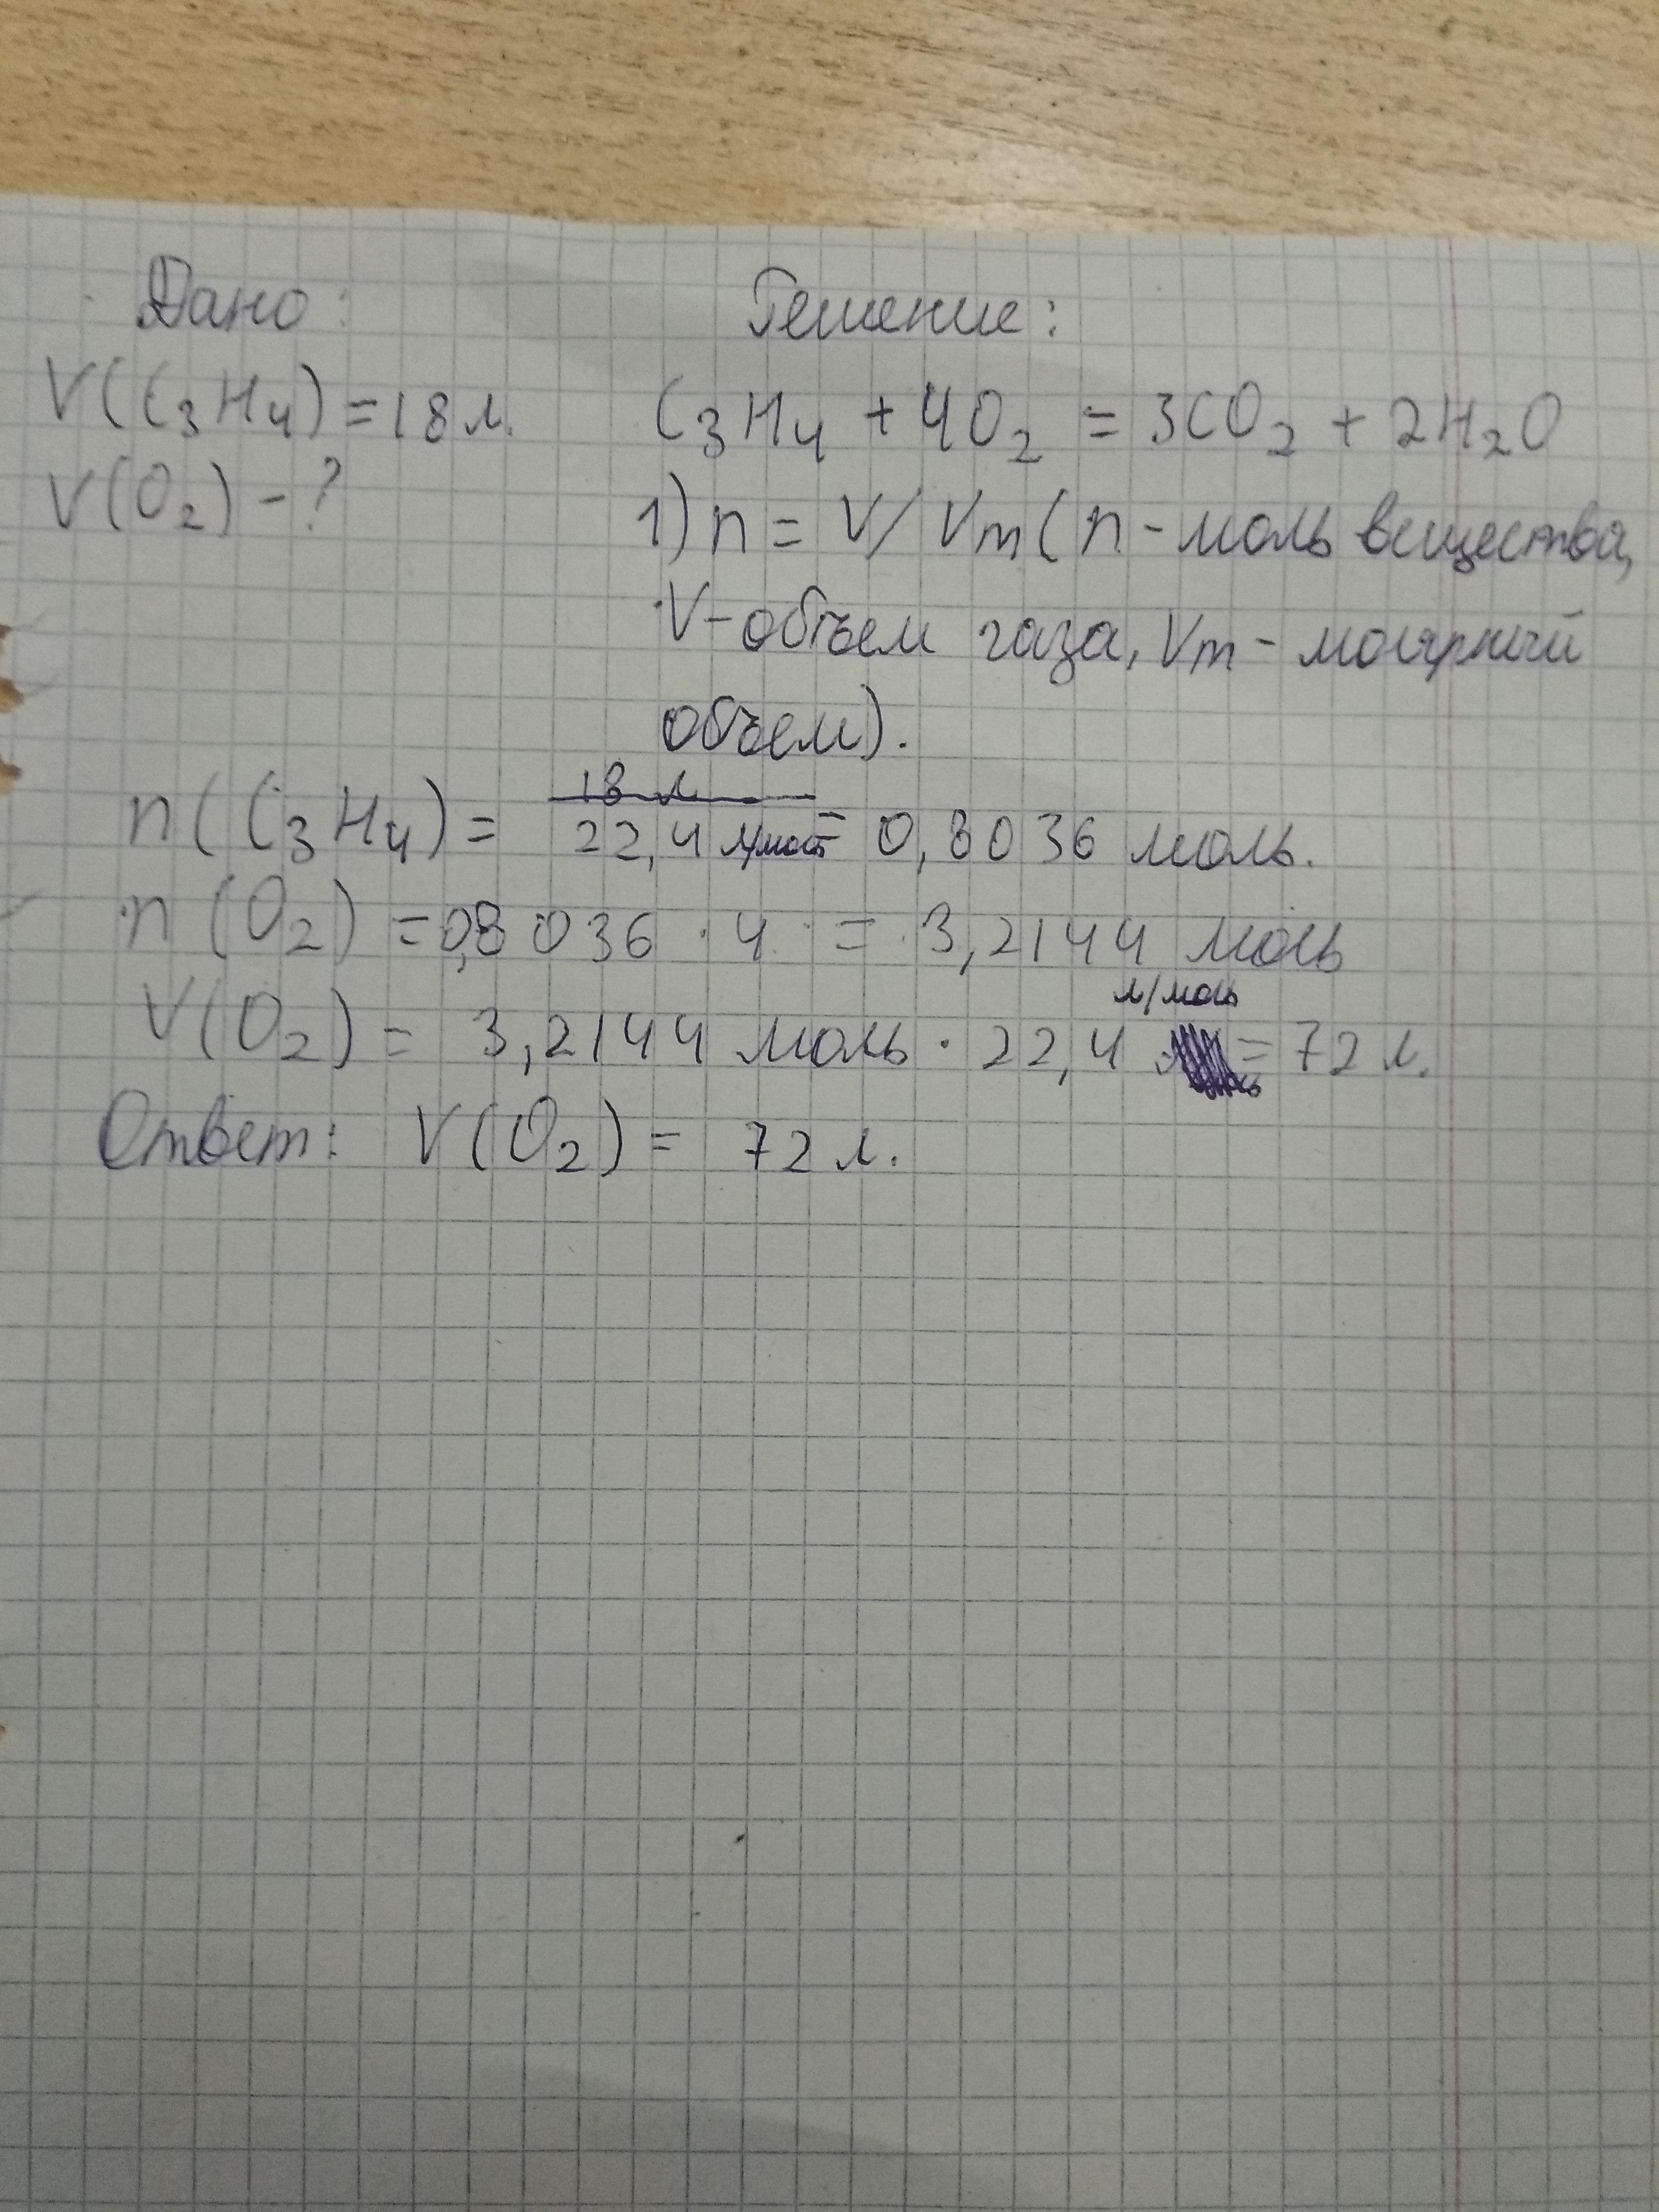 Дано:
Решение:
V(C₃H₄) = 18 л.
C₃H₄ + 4O₂ = 3CO₂ + 2H₂O
V(O₂) - ?
1) n = V/Vm (n - моль вещества,
V - объем газа, Vm - молярный
объем).
n(C₃H₄) = 18 л / 22,4 л/моль = 0,8036 моль.
n(O₂) = 0,8036 · 4 = 3,2144 моль
V(O₂) = 3,2144 моль · 22,4 л/моль = 72 л.
Ответ: V(O₂) = 72 л.